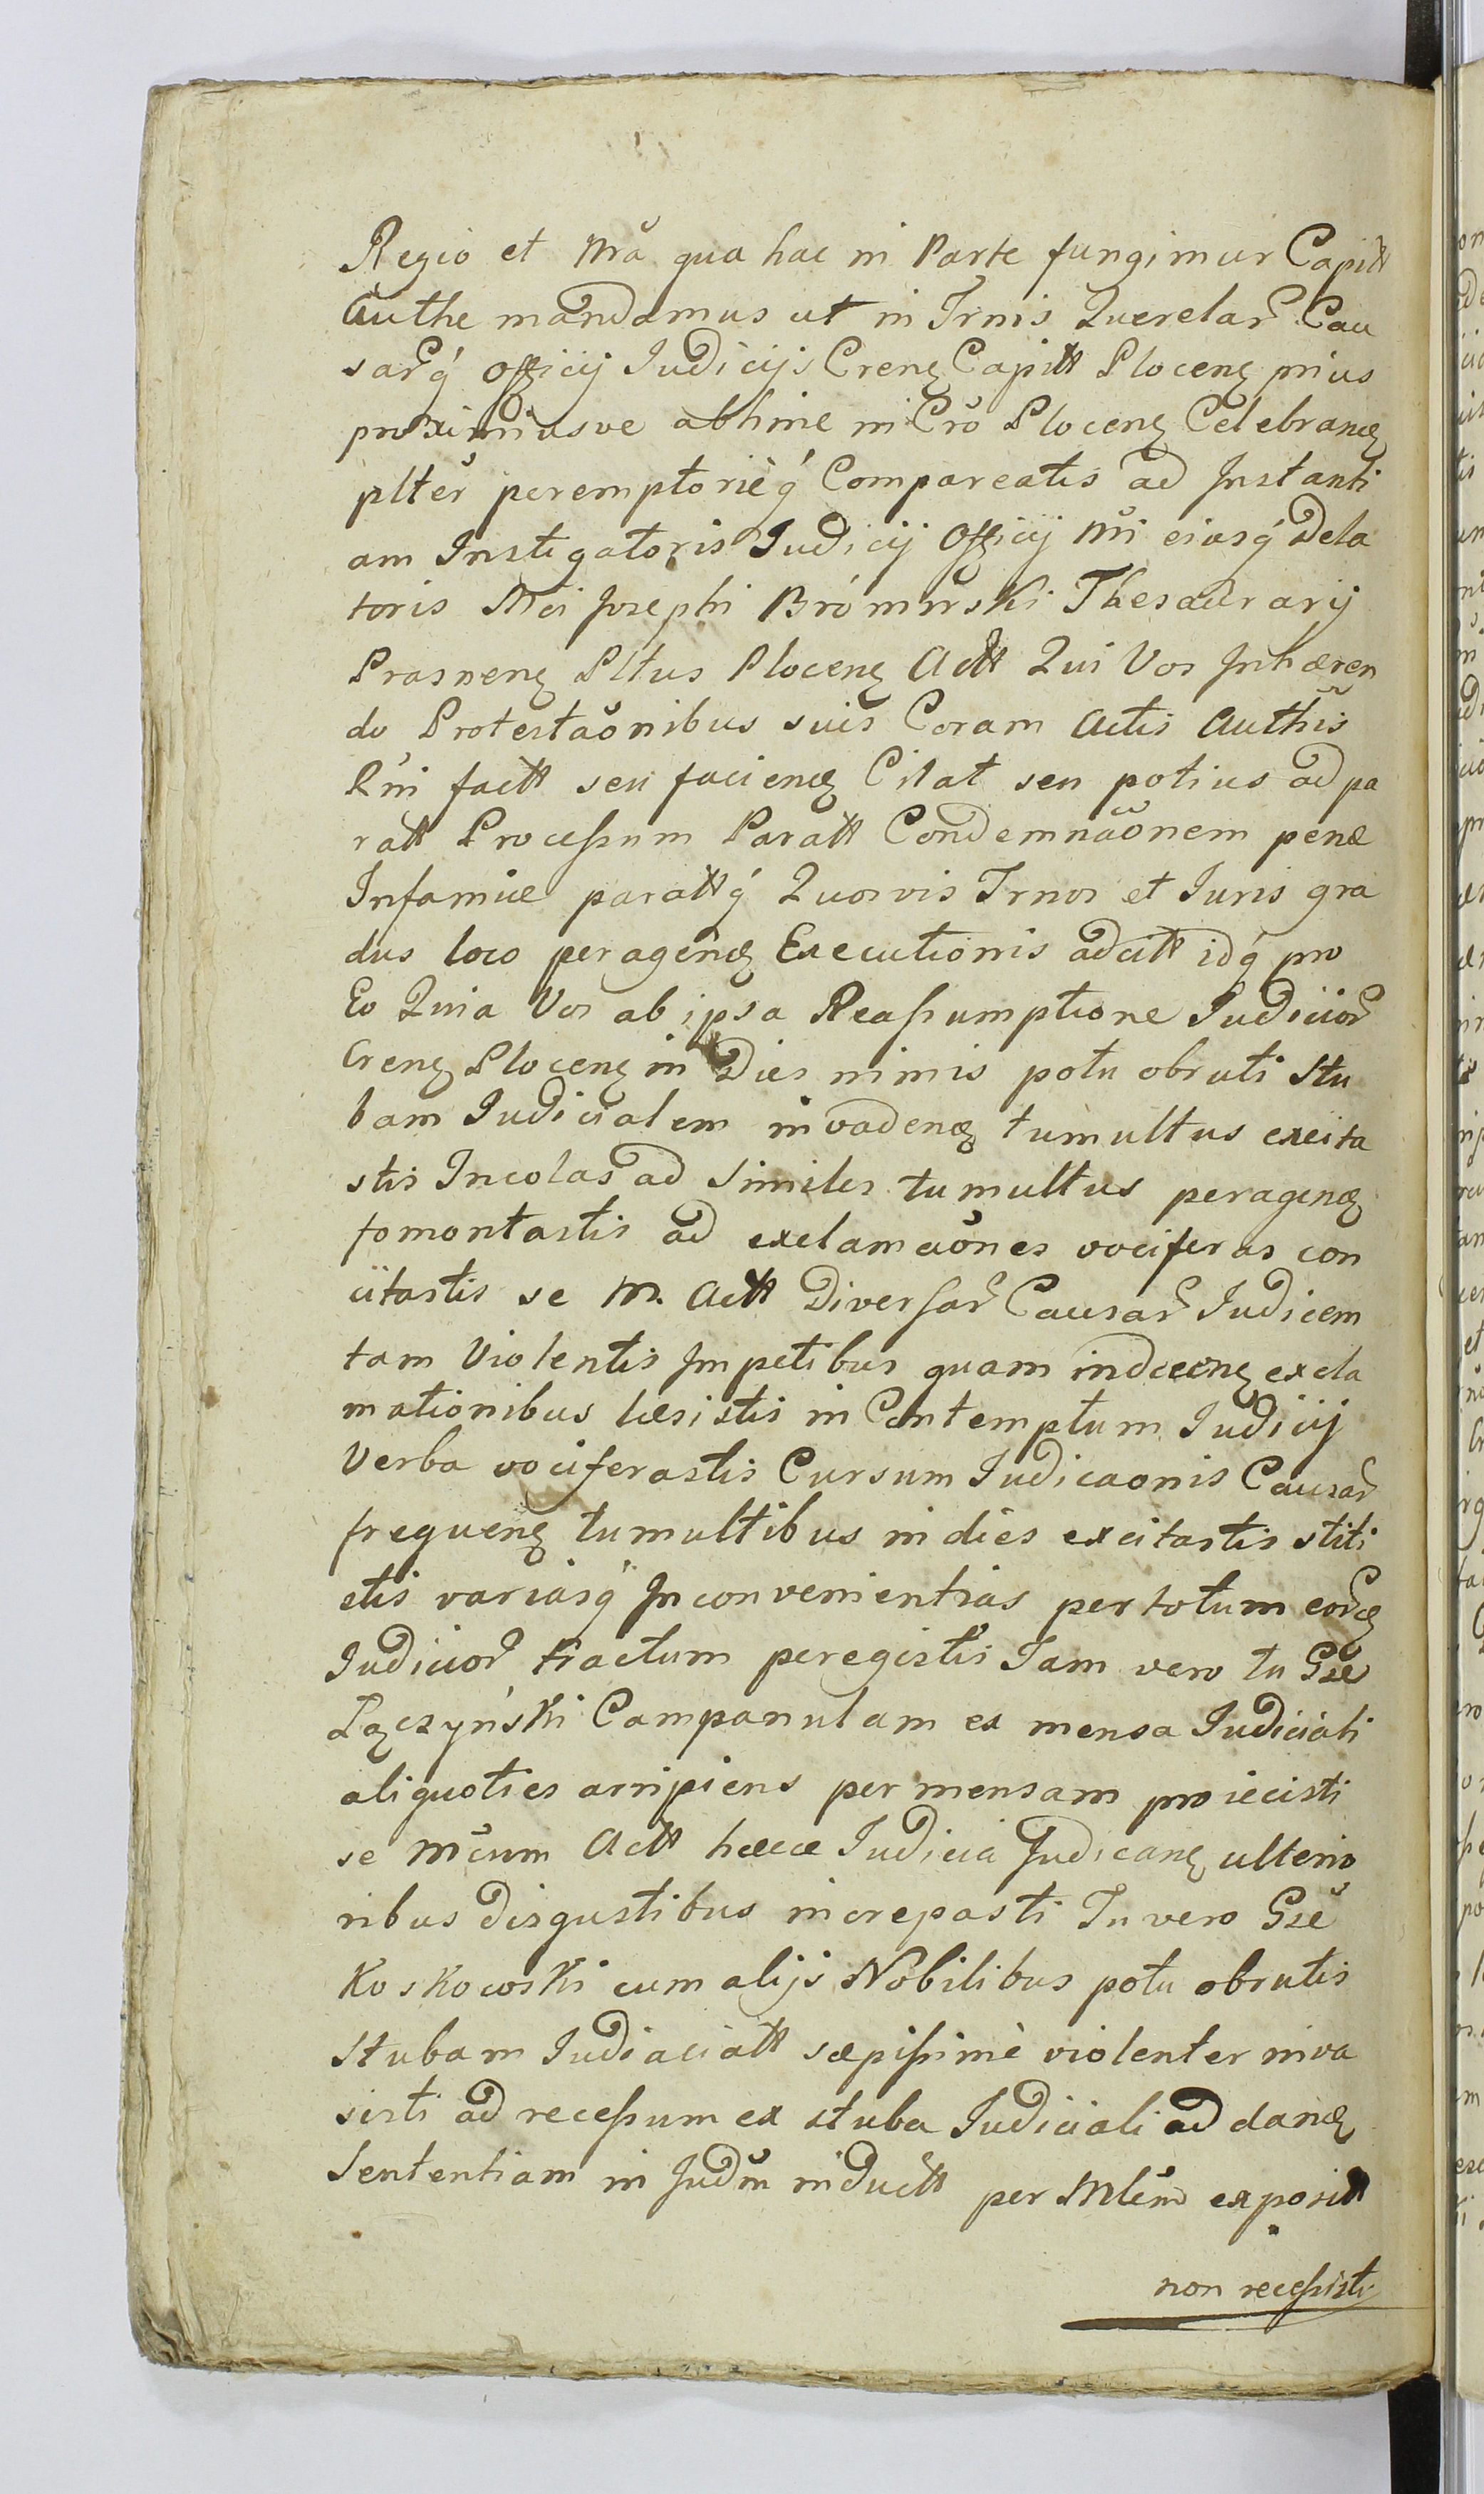 Regio et nrã qua hac in Parte fungimur Capitt
Authe mandamus ut in Trnis Querelar Cau
sarq́ Officij Judicijs Crenȩ Capitt Plocenȩ prius
proximiusve abhinc in Crõ Plocenȩ Celebranȩ
plter peremptorièq́ Compareatis ad Instanti
am Instigatoris Judicij Officij nri eiusq́ Dela
toris Mci Josephi Brómirski Thesaurarij
Prasnenȩ Pltus Plocenȩ Actt Qui Vos Inhæren
do Protestaõnibus suis Coram Actis Authis
Pñi factt seu facienȩ Citat seu potius ad pa
ratt Processum Paratt Condemnaõnem penæ
Infamiæ parattq́ Quosvis Trnos et Juris gra
dus loco peragenȩ Executionis adcitt idq́ pro
Eo Quia Vos ab ipsa Reassumptione Judicior
Crenȩ Plocenȩ in Dies nimis potu obruti Stu
bam Judicialem invadenȩ tumultus excita
stis Incolas ad Similes tumultus peragenȩ
fomontastis ad exclamaõnes vociferas con
citastis se M. Actt Diversar Causar Judicem
tam Violentis Impetibus quam indecenȩ excla
mationibus læsistis in Contemptum Judicij
Verba vociferastis Cursum Judicaonis Causar
frequenȩ tumultibus in dies excitastis stiti
stis variasq́ Inconvenientias per totum eorȩ
Judicior tractum peregistis Iam vero tu Gse
Łączyński Campanulam ex mensa Judiciali
aliquoties arripiens per mensam proiecisti
se Mcum Actt hæcce Judicia Judicanȩ ulterio
ribus disgustibus increpasti Tu vero Gse
Koskowski cum alijs Nobilibus potu obrutis
Stubam Judiaciatt sæpissimè violenter inva
sisti ad recessum ex stuba Judiciali ad danȩ
Sententiam in Judm inductt per Mlem expositt
non recessisti